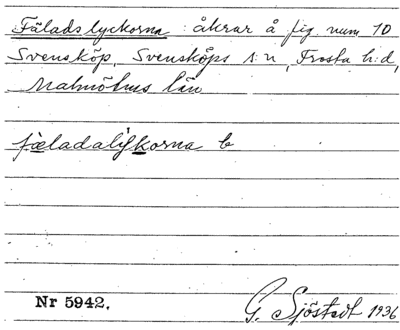 Fäladslyckorna : åkrar å fig. num 10
Svensköp, Svensköps s:n, Frosta h:d,
Malmöhus län
fæladalykorna b
Nr 5942.
G. Sjöstedt 1936